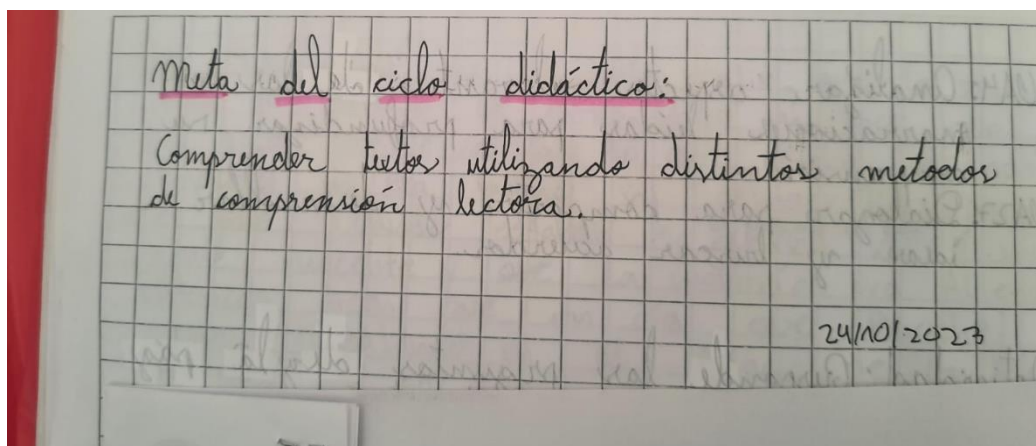 Meta del ciclo didáctico:
Comprender textos utilizando distintos metodos
de comprensión lectora.
24/10/2023